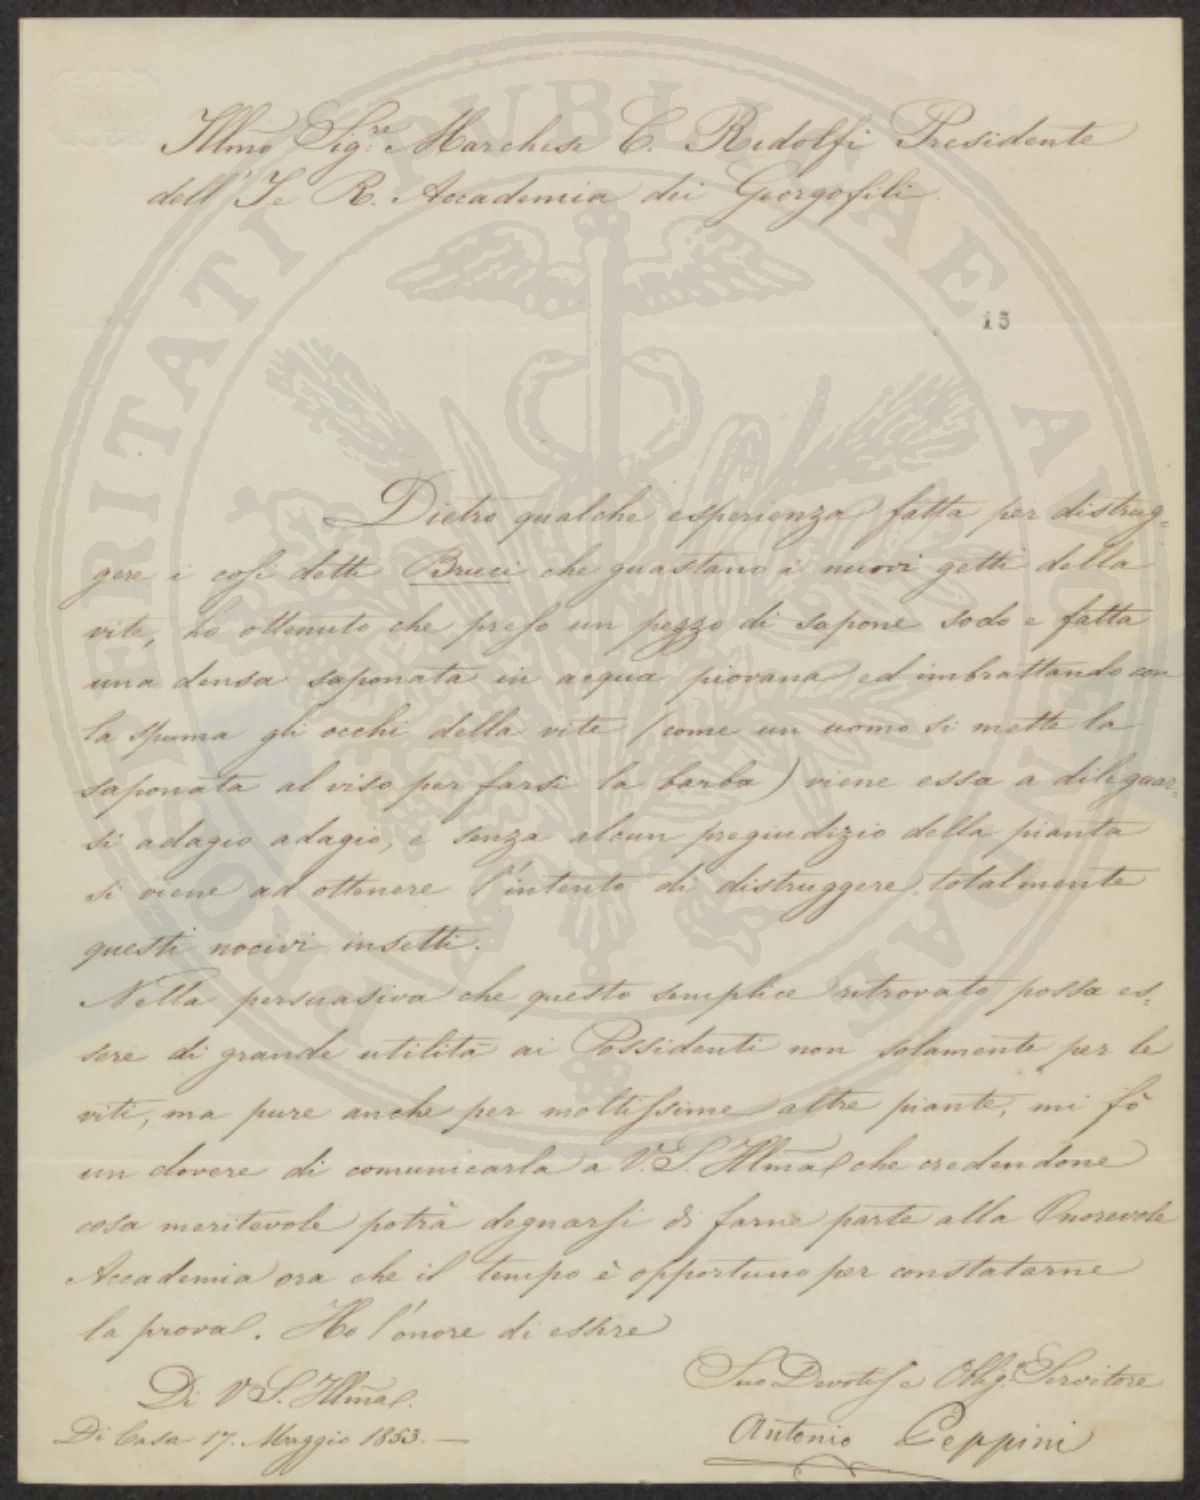 Illmo Sig.re Marchese C. Ridolfi Presidente
dell' I e R. Accademia dei Georgofili.
15
Dietro qualche esperienza fatta per distrug=
gere i così detti Bruci che guastano i nuovi getti della
vite, ho ottenuto che preso un pezzo di sapone sodo e fatta
una densa saponata in acqua piovana ed imbrattando con
la spuma gli occhi della vite (come un uomo si mette la
saponata al viso per farsi la barba) viene essa a dileguar=
si adagio adagio, e senza alcun pregiudizio della pianta
si viene ad ottenere l'intento di distruggere totalmente
questi nocivi insetti.
Nella persuasiva che questo semplice ritrovato possa es=
sere di grande utilità ai Possidenti non solamente per le
viti, ma pure anche per moltissime altre piante, mi fò
un dovere di comunicarla a V.S. Illma che credendone
cosa meritevole potrà degnarsi di farne parte alla Onorevole
Accademia ora che il tempo è opportuno per constatarne
la prova. Ho l'onore di essere
Di V.S. Illma.
Di Casa 17. Maggio 1853. —
Suo Devotis e Obbg. Servitore
Antonio Peppini
PROSPERITATI PUBLICAE AUGENDAE